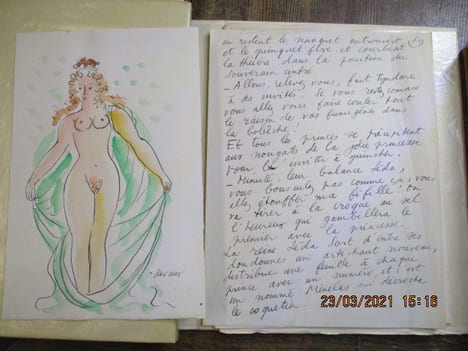 en restent le naoquet entrouvert
69
et le quinquet fixe, et courbent
la théière dans la position du
souverain
— Allons, relevez vous, fait Tyndare
à ses invités. Je vous
vous allez vous faire couler tout
le raisin de vos fumigènes dans
la
Et tous les princes se précipitent
aux nougats de la jolie princesse
pour l' inviter à guincher.
— Minute, leur balance Léda,
vous bousculez pas comme ça, vous
allez étouffer ma fifille! on
va tirer à la croque au sel
l'heureux qui gambillera le
premier avec la princesse.
La reine Léda sort d'entre ses
doudounes un artichaut nouveau,
distribue une feuille à chaque
prince avec un numéro, et c'est
un nommé Ménélas qui décroche
le coquetier.
23/03/2021 15:16